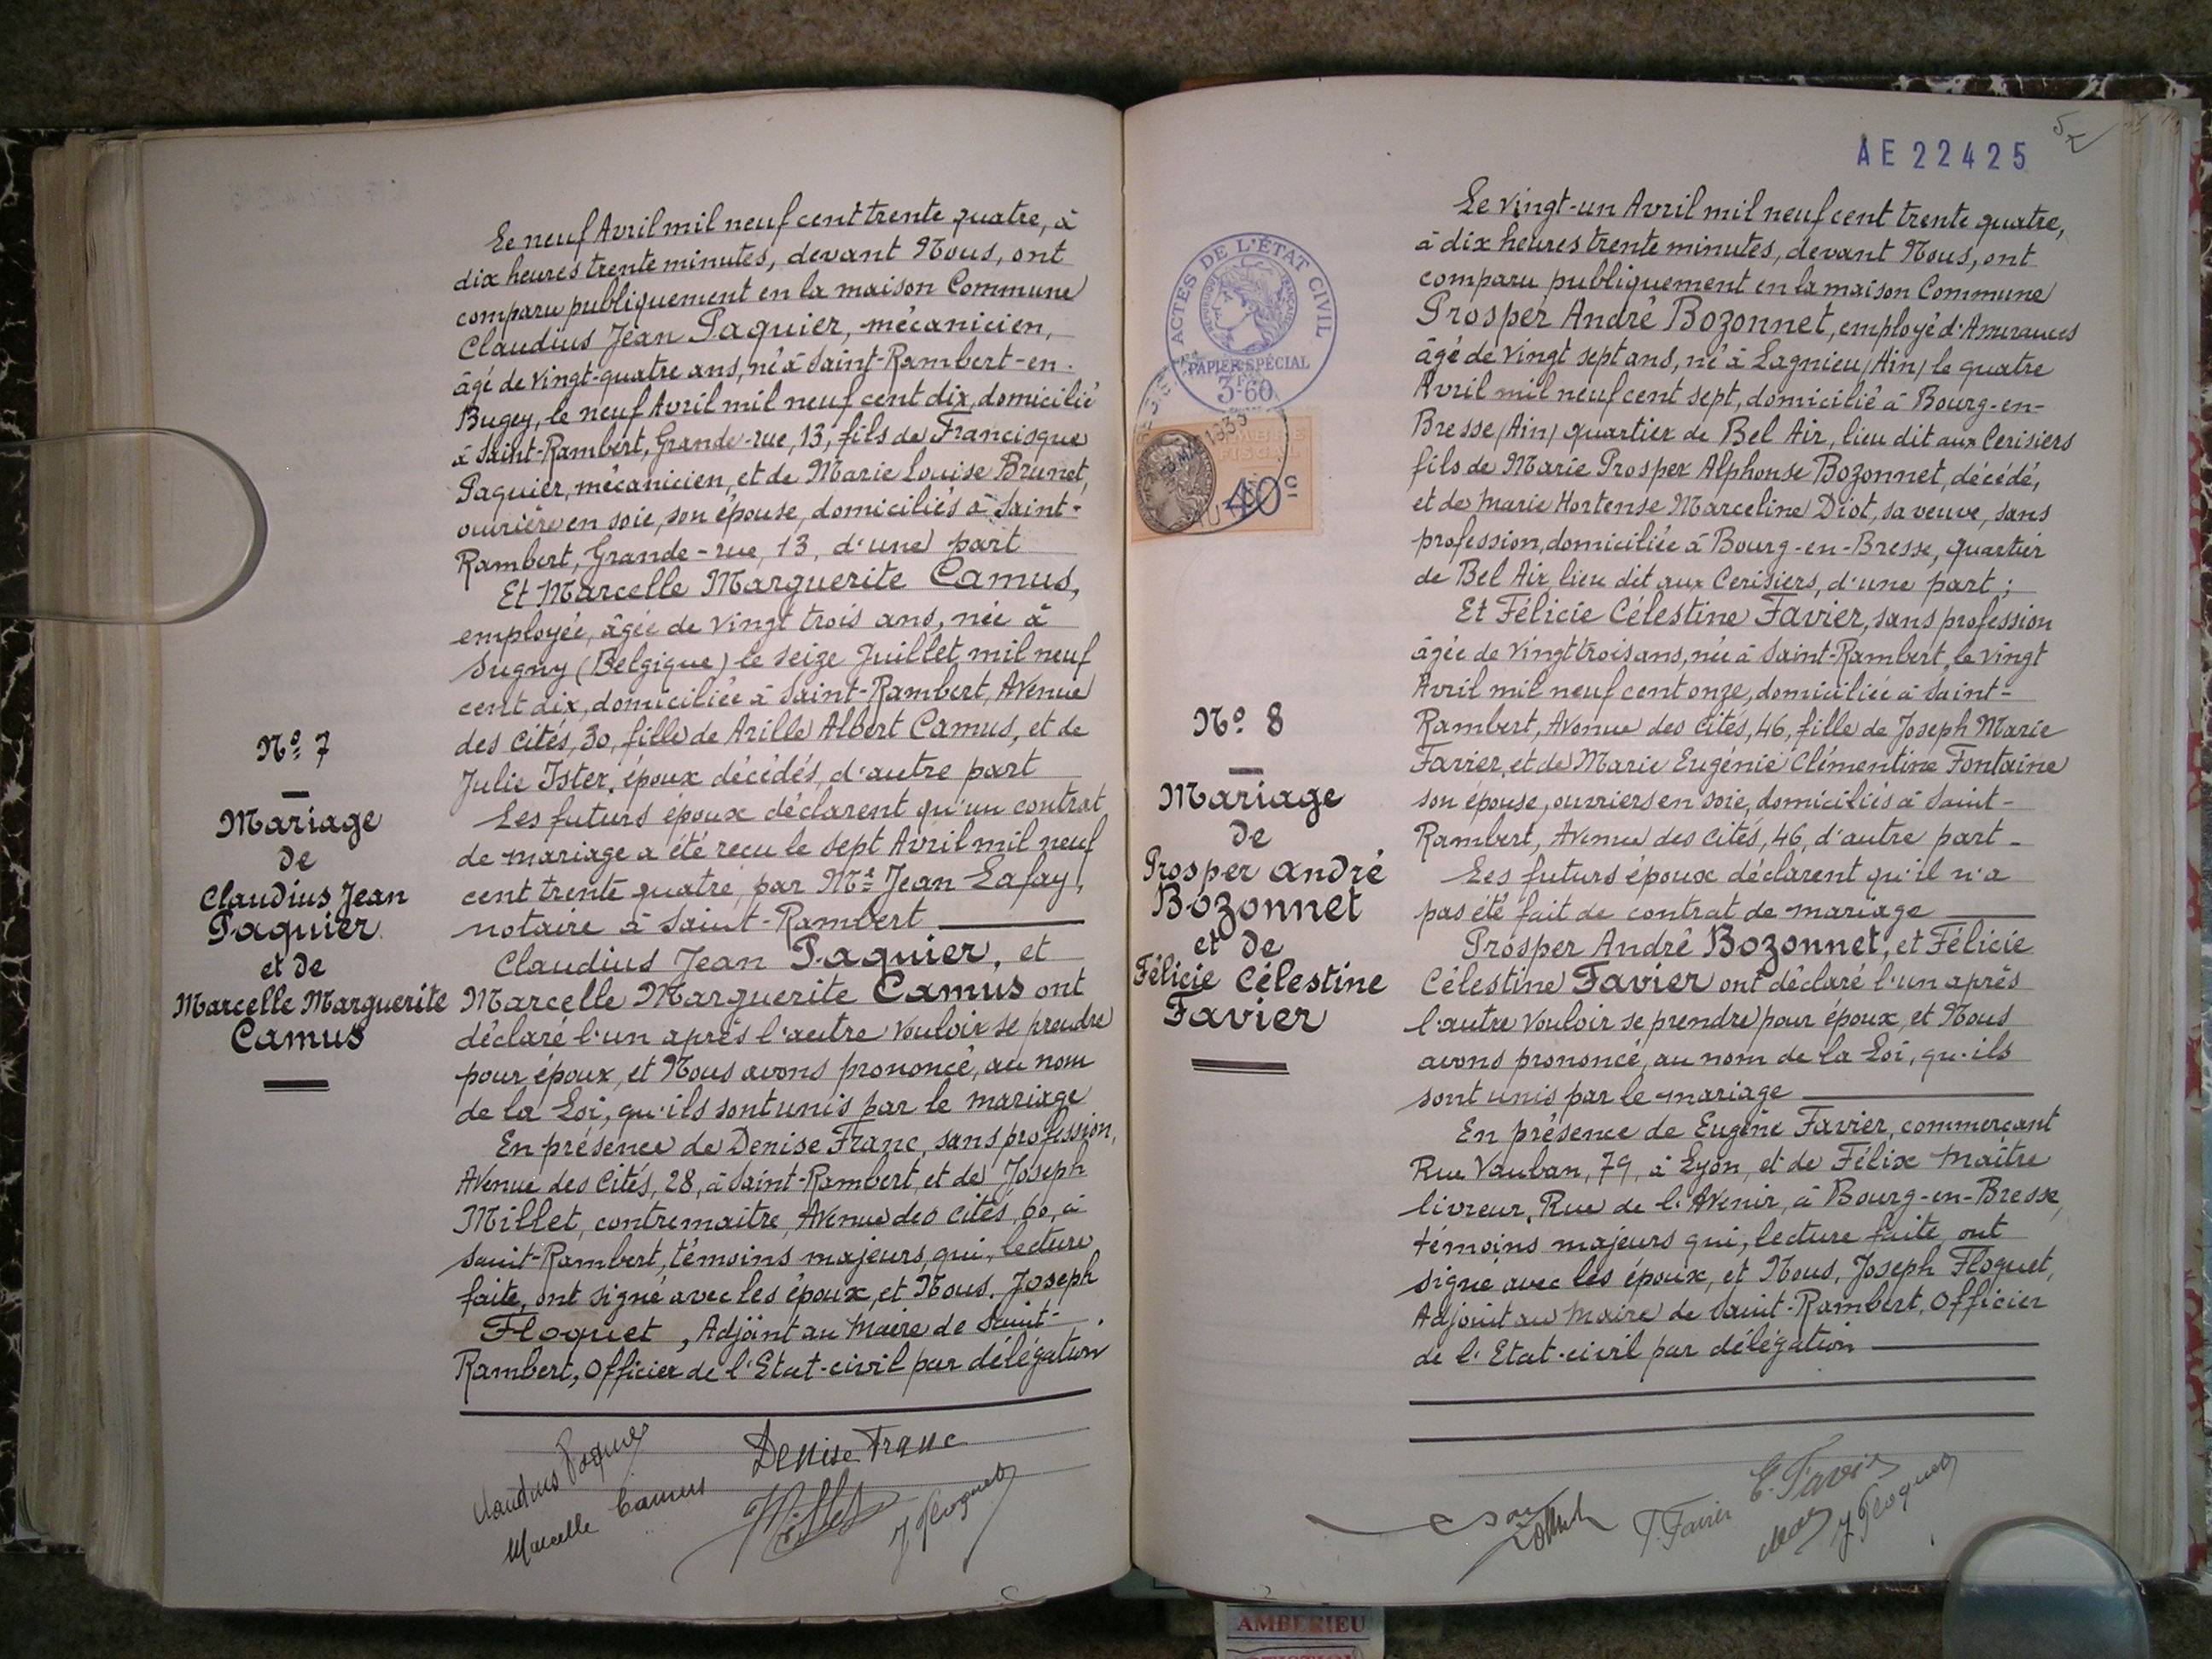 Le neuf Avril mil neuf cent trente quatre, à
dix heures trente minutes, devant Nous, ont
comparu publiquement en la maison Commune
Claudius Jean Paquier, mécanicien,
âgé de vingt-quatre ans, né à Saint-Rambert-en-
Bugey, le neuf Avril mil neuf cent dix, domicilié
à Saint-Rambert, Grande-rue, 13, fils de Francisque
Paquier, mécanicien, et de Marie Louise Brunet,
ouvrière en soie, son épouse, domiciliés à Saint-
Rambert, Grande-rue, 13, d'une part
Et Marcelle Marguerite Camus,
employée, âgée de vingt trois ans, née à
Sugny (Belgique) le seize Juillet mil neuf
cent dix, domiciliée à Saint-Rambert, Avenue
des Cités, 30, fille de Arille Albert Camus, et de
Julie Ister, époux décédés, d'autre part
Les futurs époux déclarent qu'un contrat
de mariage a été reçu le sept Avril mil neuf
cent trente quatre, par Me Jean Lafay,
notaire à Saint-Rambert
Claudius Jean Paquier, et
Marcelle Marguerite Camus ont
déclaré l'un après l'autre vouloir se prendre
pour époux, et Nous avons prononcé, au nom
de la Loi, qu'ils sont unis par le mariage
En présence de Denise Franc, sans profession,
Avenue des Cités, 28, à Saint-Rambert, et de Joseph
Millet, contremaitre, Avenue des Cités, 60, à
Saint-Rambert, témoins majeurs, qui, lecture
faite, ont signé avec les époux, et Nous, Joseph
Floquet, Adjoint au Maire de Saint-
Rambert, Officier de l'Etat-civil par délégation
No 7
Mariage
de
Claudius Jean
Paquier
et de
Marcelle Marguerite
Camus
Claudius Paquier
Denise Franc
Marcelle Camus
Millet
J Floquet
AE 22425
ACTES DE L'ÉTAT CIVIL
PAPIER SPÉCIAL
3F60
TIMBRE
FISCAL
40c
Le vingt-un Avril mil neuf cent trente quatre,
à dix heures trente minutes, devant Nous, ont
comparu publiquement en la maison Commune
Prosper André Bozonnet, employé d'Assurances
âgé de vingt sept ans, né à Lagnieu (Ain) le quatre
Avril mil neuf cent sept, domicilié à Bourg-en-
Bresse (Ain) quartier de Bel Air, lieu dit aux Cerisiers
fils de Marie Prosper Alphonse Bozonnet, décédé,
et de Marie Hortense Marceline Diot, sa veuve, sans
profession, domiciliée à Bourg-en-Bresse, quartier
de Bel Air lieu dit aux Cerisiers, d'une part ;
Et Félicie Célestine Favier, sans profession
âgée de vingt trois ans, née à Saint-Rambert, le vingt
Avril mil neuf cent onze, domiciliée à Saint-
Rambert, Avenue des Cités, 46, fille de Joseph Marie
Favier, et de Marie Eugénie Clémentine Fontaine
son épouse, ouvriers en soie, domiciliés à Saint-
Rambert, Avenue des Cités, 46, d'autre part -
Les futurs époux déclarent qu'il n'a
pas été fait de contrat de mariage
Prosper André Bozonnet, et Félicie
Célestine Favier ont déclaré l'un après
l'autre vouloir se prendre pour époux, et Nous
avons prononcé, au nom de la Loi, qu'ils
sont unis par le mariage
En présence de Eugène Favier, commerçant
Rue Vauban, 79, à Lyon, et de Félix Maître
livreur, Rue de l'Avenir, à Bourg-en-Bresse,
témoins majeurs qui, lecture faite, ont
signé avec les époux, et Nous, Joseph Floquet,
Adjoint au Maire de Saint-Rambert, Officier
de l'Etat-civil par délégation
No 8
Mariage
de
Prosper André
Bozonnet
et de
Félicie Célestine
Favier
E. Favier
F. Favier
J Floquet
AMBERIEU